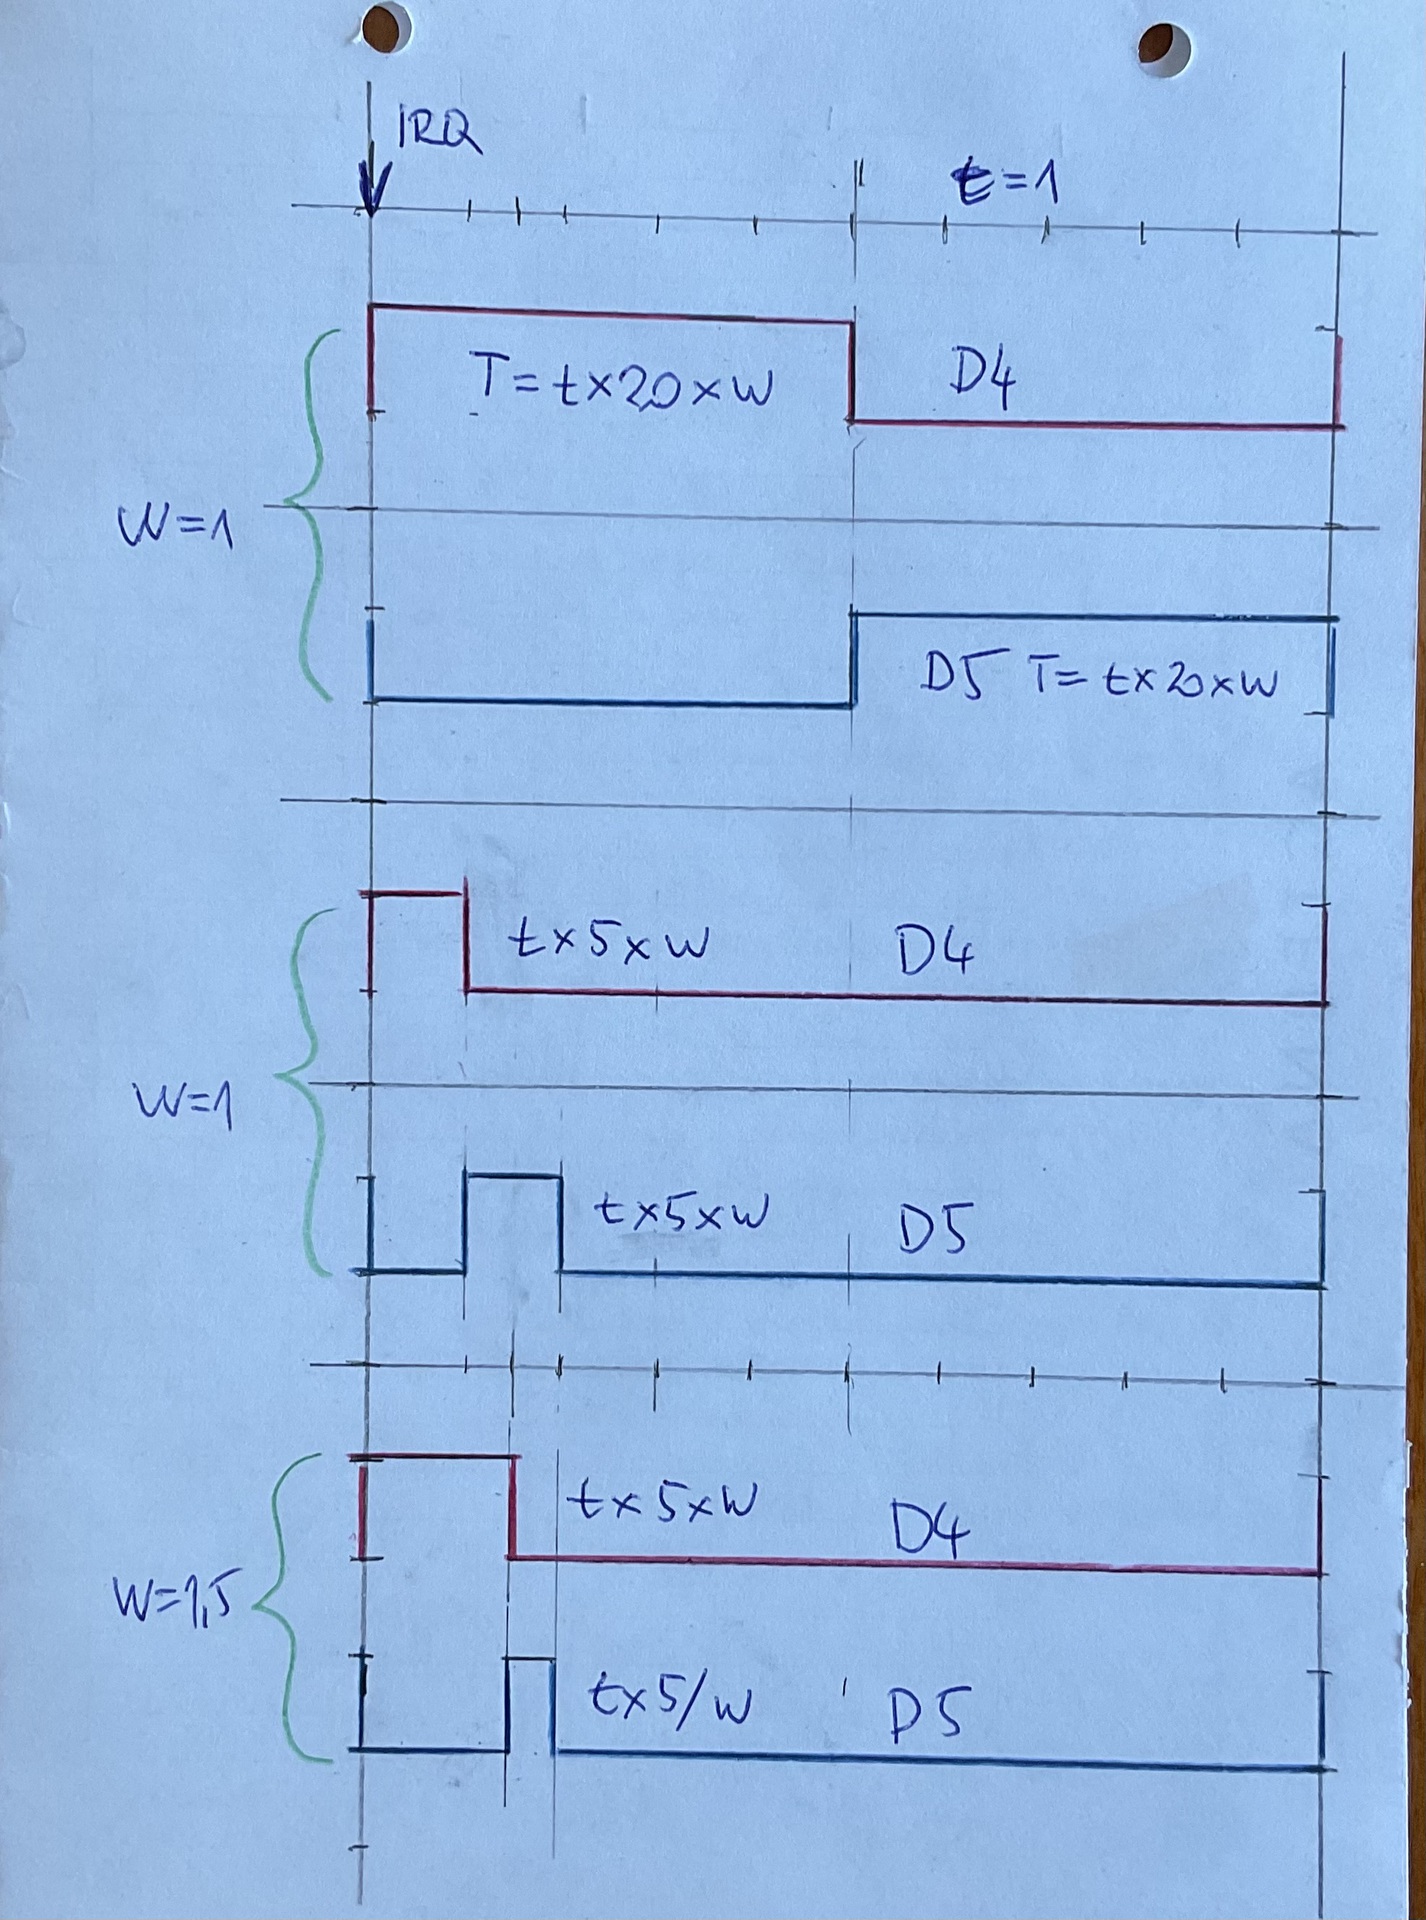 IRQ
t=1
T=t×20×W
D4
W=1
D5 T=t×20×W
t×5×W
D4
W=1
t×5×W
D5
t×5×W
D4
W=1,5
t×5/W
D5